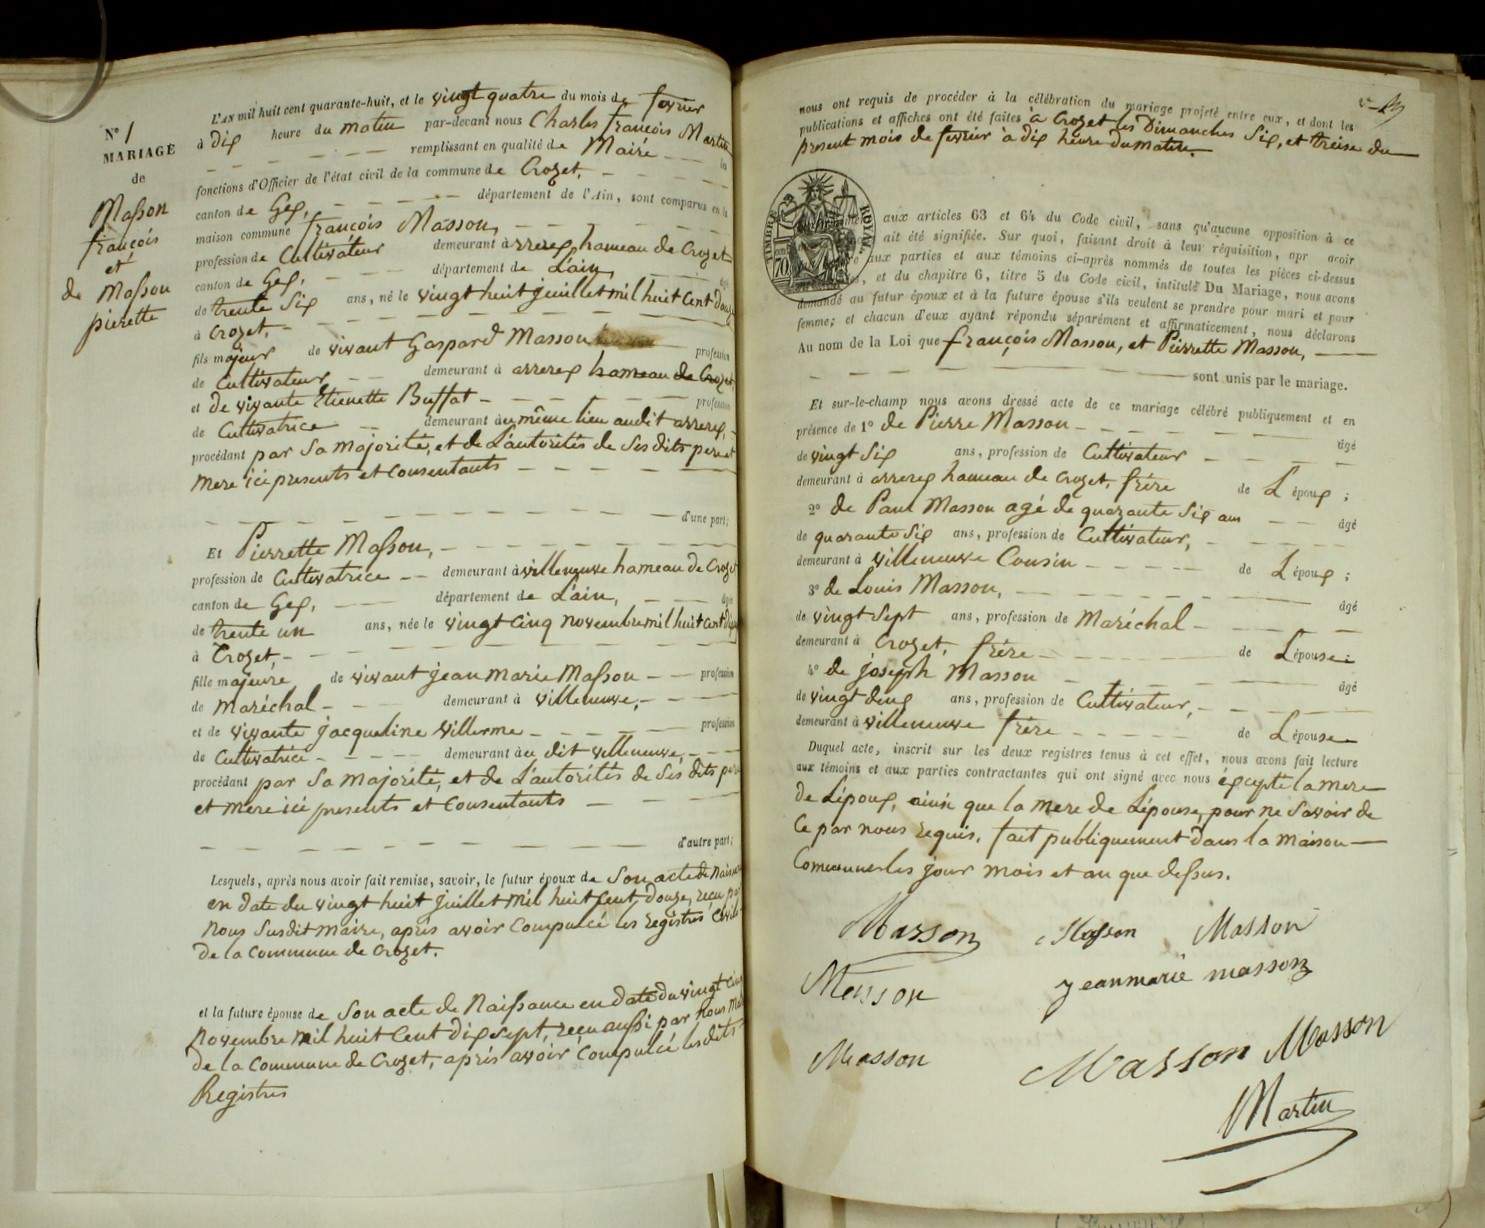 N° 1
MARIAGE
de
Masson
françois
et
de Masson
pierette
L'AN mil huit cent quarante-huit, et le vingt quatre du mois de fevrier
à dix heure du matin par-devant nous Charles françois Martin
remplissant en qualité de Maire les
fonctions d'Officier de l'état civil de la commune de Crozet,
canton de Gex, département de l'Ain, sont comparus en la
maison commune françois Masson,
profession de Cultivateur demeurant à arrerex hameau de Crozet
canton de Gex, département de L'ain, âgé
de trente Six ans, né le vingt huit juillet mil huit Cent douze
à Crozet,
fils majeur de vivant Gaspard Masson profession
de Cultivateur demeurant à arrerex hameau de Crozet
et de vivante Etienette Buffat profession
de Cultivatrice demeurant au même lieu audit arrerex,
procédant par Sa majorité, et de L'autorités de Ses dits pere et
mere ici presents et Consentants
d'une part;
Et Pierrette Masson,
profession de Cultivatrice demeurant à villeneuve hameau de Crozet
canton de Gex, département de L'ain, âgée
de trente un ans, née le vingt Cinq novembre mil huit Cent dix
à Crozet,
fille majeure de vivant jean Marie Masson profession
de Maréchal demeurant à villeneuve,
et de vivante jacqueline villerme profession
de Cultivatrice demeurant à ce dit villeneuve,
procédant par Sa majorité, et de L'autorités de Ses dits pere
et mere ici presents et Consentants
d'autre part;
Lesquels, après nous avoir fait remise, savoir, le futur époux de Son acte de Naissance
en date du vingt huit juillet mil huit Cent douze, reçu par
nous Susdit Maire, aprés avoir Compulcé les registres Civils
de la Commune de Crozet.
et la future épouse de Son acte de Naissance en date du vingt Cinq
novembre mil huit Cent dix Sept, reçu aussi par nous Maire
de la Commune de Crozet, aprés avoir Compulcé les dits
Registres
nous ont requis de procéder à la célébration du mariage projeté entre eux, et dont les
publications et affiches ont été faites à Crozet les Dimanches Six, et treize du
present mois de fevrier à dix heure du matin.
TIMBRE ROYAL
70
aux articles 63 et 64 du Code civil, sans qu'aucune opposition à ce
ait été signifiée. Sur quoi, faisant droit à leur réquisition, apr avoir
aux parties et aux témoins ci-après nommés de toutes les pièces ci-dessus
, et du chapitre 6, titre 5 du Code civil, intitulé Du Mariage, nous avons
demandé au futur époux et à la future épouse s'ils veulent se prendre pour mari et pour
femme; et chacun d'eux ayant répondu séparément et affirmativement, nous déclarons
Au nom de la Loi que françois Masson, et Pierrette Masson,
sont unis par le mariage.
Et sur-le-champ nous avons dressé acte de ce mariage célébré publiquement et en
présence de 1° de Pierre Masson âgé
de vingt Six ans, profession de Cultivateur
demeurant à arrerex hameau de Crozet, frère de L époux;
2° de Paul Masson agé de quarante Six ans âgé
de quarante Six ans, profession de Cultivateur,
demeurant à villeneuve Cousin de L époux;
3° de Louis Masson, âgé
de vingt Sept ans, profession de Maréchal
demeurant à Crozet, frère de L épouse;
4° de joseph Masson âgé
de vingt deux ans, profession de Cultivateur,
demeurant à villeneuve frère de L épouse
Duquel acte, inscrit sur les deux registres tenus à cet effet, nous avons fait lecture
aux témoins et aux parties contractantes qui ont signé avec nous éxcepte la mere
de L'époux, ainsi que la mere de L'épouse, pour ne Savoir de
Ce par nous requis. fait publiquement dans la Maison
Communes les jour mois et an que dessus.
Masson Masson Masson
Masson jeanmarie masson
Masson Masson Masson
Martin